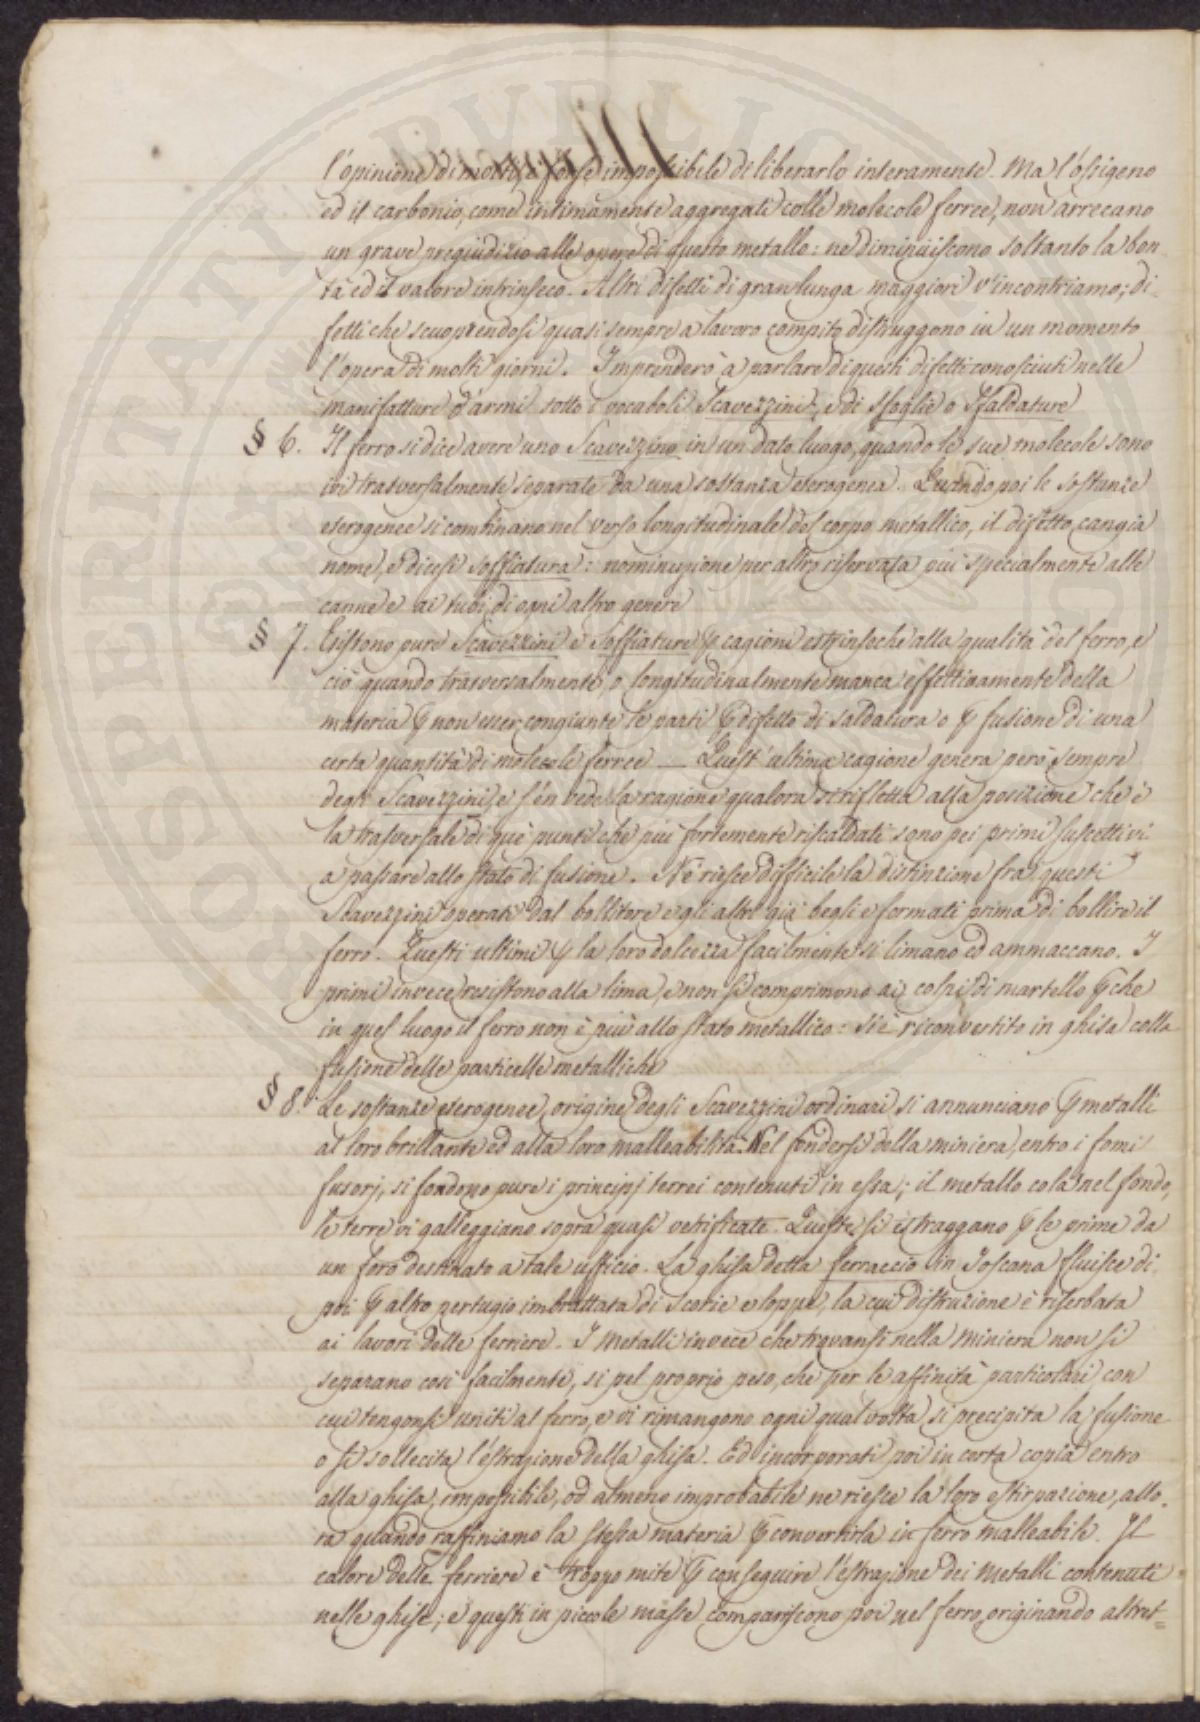 l'opinione di molti, è forse impossibile di liberarlo interamente. Ma l'ossigeno
ed il carbonio, come intimamente aggregati colle molecole ferree, non arrecano
un grave pregiudizio alle opere di questo metallo: ne diminuiscono soltanto la bon-
tà ed il valore intrinseco. Altri difetti di gran lunga maggiori v'incontriamo; di-
fetti che scuoprendosi quasi sempre a lavoro compito, distruggono in un momento
l'opera di molti giorni. Imprenderò a parlare di questi difetti conosciuti nelle
manifatture d'armi sotto i vocaboli Scavezzini, e di Sfoglie o Sfaldature
§ 6. Il ferro si dice avere uno Scavezzino in un dato luogo, quando le sue molecole sono
ivi trasversalmente separate da una sostanza eterogenea. Quando poi le sostanze
eterogenee si combinano nel verso longitudinale del corpo metallico, il difetto cangia
nome, e dicesi soffiatura: nominazione per altro riservata più specialmente alle
canne e ai tubi di ogni altro genere
§ 7. Esistono pure Scavezzini e Soffiature ꝑ cagioni estrinseche alla qualità del ferro, e
ciò quando trasversalmente, o longitudinalmente manca effettivamente della
materia ꝑ non esser congiunte le parti ꝑ difetto di saldatura o ꝑ fusione di una
certa quantità di molecole ferree — Quest'ultima cagione genera però sempre
degli Scavezzini, e s'en vede la ragione qualora si rifletta alla posizione che è
la trasversale di què punti che più fortemente riscaldati sono pei primi suscettivi
a passare allo stato di fusione. Nè riesce difficile la distinzione fra questi
Scavezzini operati dal bollitore e gli altri già begli e formati prima di bollire il
ferro. Questi ultimi ꝑ la loro dolcezza facilmente si limano ed ammaccano. I
primi invece resistono alla lima, e non si comprimono ai colpi di martello ꝑche
in quel luogo il ferro non è più allo stato metallico: si è riconvertito in ghisa colla
fusione delle particelle metalliche
§ 8. Le sostanze eterogenee, origine degli Scavezzini ordinari si annunciano ꝑ metalli
al loro brillante ed alla loro malleabilità. Nel fondersi della miniera, entro i forni
fusorj, si fondono pure i principj terrei contenuti in essa; il metallo cola nel fondo,
le terre vi galleggiano sopra quasi vetrificate. Queste si estraggono ꝑ le prime da
un foro destinato a tale ufficio. La ghisa detta ferraccio in Toscana fluisce di
poi ꝑ altro pertugio imbrattata di Scorie e loppe, la cui distruzione è riserbata
ai lavori delle ferriere. I Metalli invece che trovansi nella Miniera non si
separano così facilmente, si pel proprio peso, che per le affinità particolari con
cui tengonsi uniti al ferro, e vi rimangono ogni qual volta si precipita la fusione
o si sollecita l'estrazione della ghisa. Ed incorporati poi in certa copia entro
alla ghisa, impossibile, od almeno improbabile ne riesce la loro estirpazione, allo-
ra quando raffiniamo la stessa materia ꝑ convertirla in ferro malleabile. Il
calore delle ferriere è troppo mite ꝑ conseguire l'estrazione dei Metalli contenuti
nelle ghise; e questi in piccole masse compariscono poi nel ferro, originando altret-